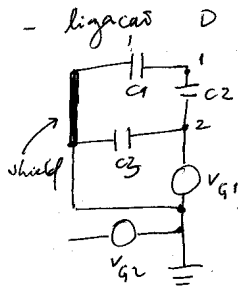 - ligação D
1
C1
1
C2
C3
2
shield
VG1
VG2